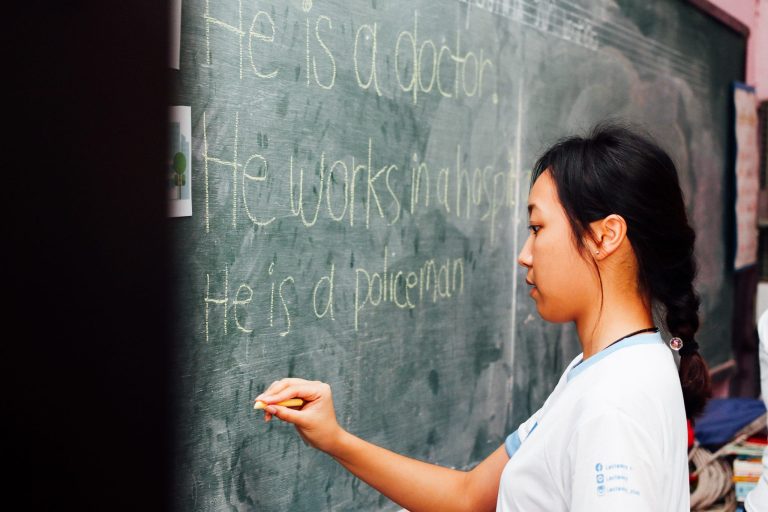 He is a doctor.
He works in a hospi
He is a policeman